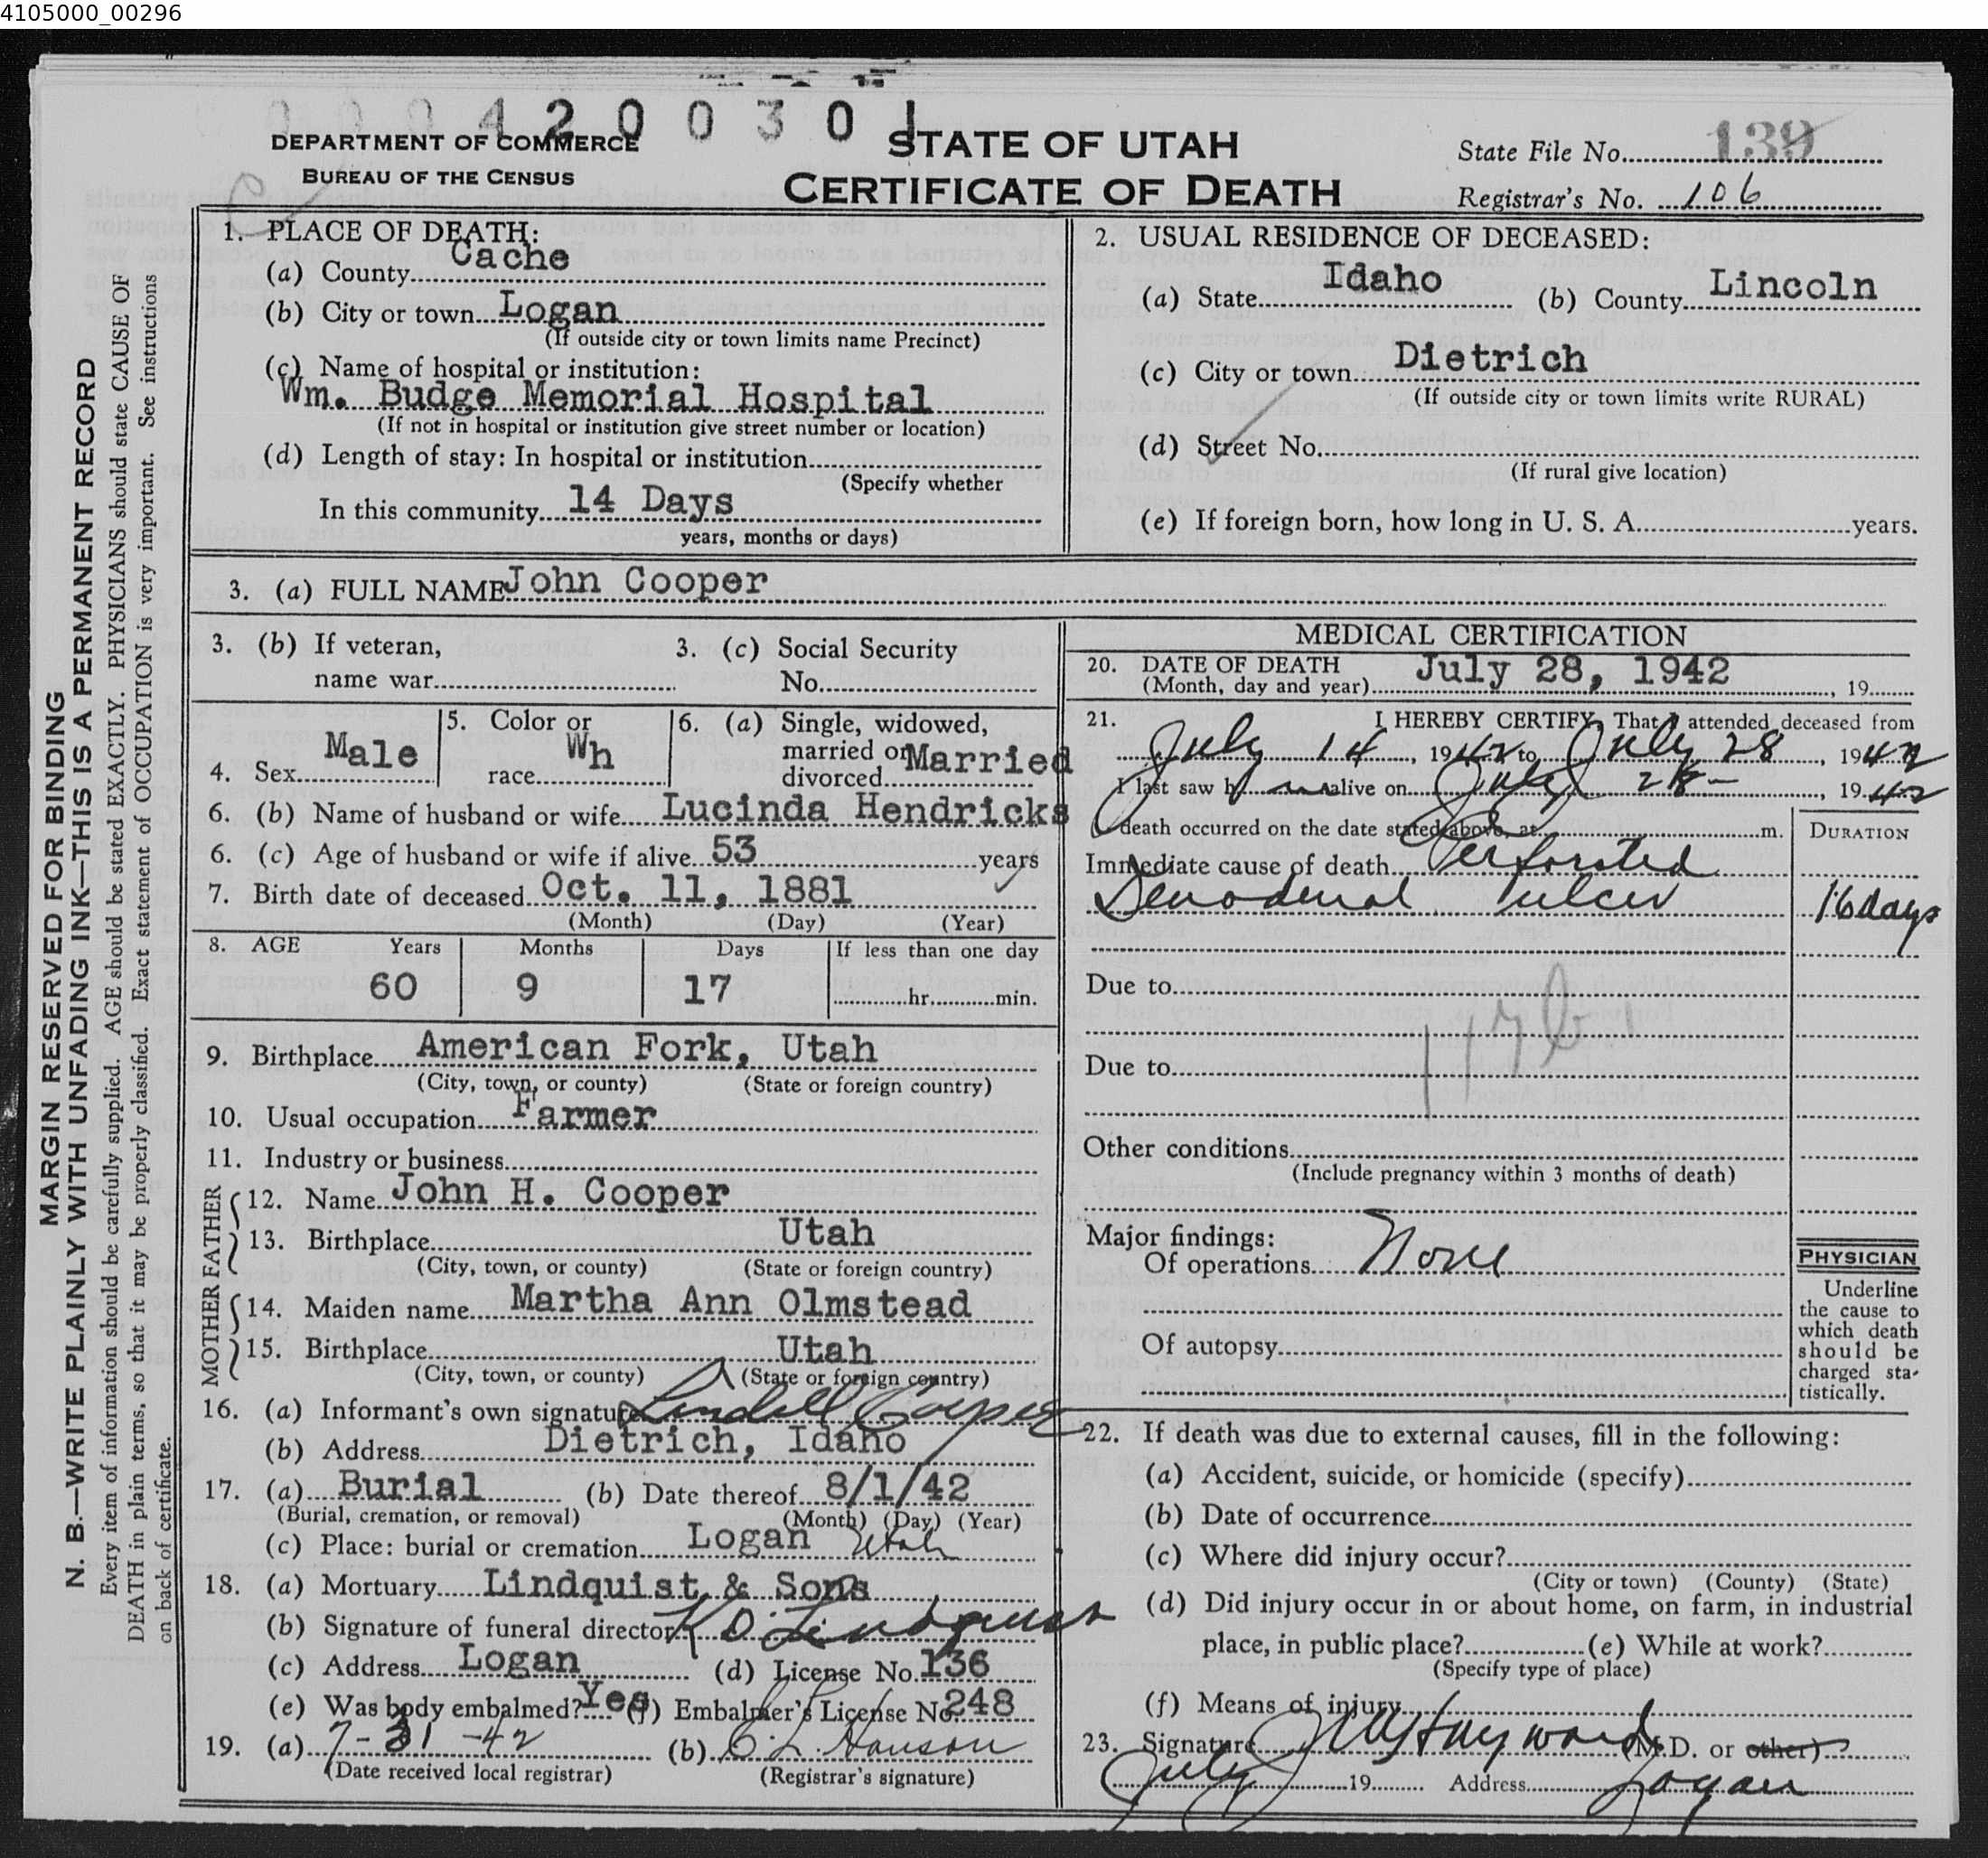 4105000_00296
0004200301
DEPARTMENT OF COMMERCE
BUREAU OF THE CENSUS
STATE OF UTAH
CERTIFICATE OF DEATH
State File No. 139
Registrar's No. 106
MARGIN RESERVED FOR BINDING
N. B.—WRITE PLAINLY WITH UNFADING INK—THIS IS A PERMANENT RECORD
Every item of information should be carefully supplied. AGE should be stated EXACTLY. PHYSICIANS should state CAUSE OF
DEATH in plain terms, so that it may be properly classified. Exact statement of OCCUPATION is very important. See instructions
on back of certificate.
1. PLACE OF DEATH:
(a) County Cache
(b) City or town Logan
(If outside city or town limits name Precinct)
(c) Name of hospital or institution:
Wm. Budge Memorial Hospital
(If not in hospital or institution give street number or location)
(d) Length of stay: In hospital or institution
(Specify whether
In this community 14 Days
years, months or days)
2. USUAL RESIDENCE OF DECEASED:
(a) State Idaho (b) County Lincoln
(c) City or town Dietrich
(If outside city or town limits write RURAL)
(d) Street No.
(If rural give location)
(e) If foreign born, how long in U. S. A. years.
3. (a) FULL NAME John Cooper
3. (b) If veteran,
name war
3. (c) Social Security
No.
4. Sex Male
5. Color or
race Wh
6. (a) Single, widowed,
married or
divorced Married
6. (b) Name of husband or wife Lucinda Hendricks
6. (c) Age of husband or wife if alive 53 years
7. Birth date of deceased Oct. 11, 1881
(Month) (Day) (Year)
8. AGE Years Months Days If less than one day
60 9 17 hr. min.
9. Birthplace American Fork, Utah
(City, town, or county) (State or foreign country)
10. Usual occupation Farmer
11. Industry or business
FATHER
12. Name John H. Cooper
13. Birthplace Utah
(City, town, or county) (State or foreign country)
MOTHER
14. Maiden name Martha Ann Olmstead
15. Birthplace Utah
(City, town, or county) (State or foreign country)
16. (a) Informant's own signature Lindell Cooper
(b) Address Dietrich, Idaho
17. (a) Burial (b) Date thereof 8/1/42
(Burial, cremation, or removal) (Month) (Day) (Year)
(c) Place: burial or cremation Logan Utah
18. (a) Mortuary Lindquist & Sons
(b) Signature of funeral director K D. Lindquist
(c) Address Logan (d) License No. 136
(e) Was body embalmed? Yes (f) Embalmer's License No. 248
19. (a) 7-31-42 (b) C. L. Hanson
(Date received local registrar) (Registrar's signature)
MEDICAL CERTIFICATION
20. DATE OF DEATH July 28, 1942
(Month, day and year) , 19
21. I HEREBY CERTIFY, That I attended deceased from
July 14, 1942 to July 28, 1942
I last saw h im alive on July 28 - , 1942
death occurred on the date stated above, at m.
DURATION
Immediate cause of death Perforated
Deuodenal ulcer 16 days
Due to
Due to
Other conditions
(Include pregnancy within 3 months of death)
Major findings:
Of operations None
Of autopsy
PHYSICIAN
Underline
the cause to
which death
should be
charged sta-
tistically.
22. If death was due to external causes, fill in the following:
(a) Accident, suicide, or homicide (specify)
(b) Date of occurrence
(c) Where did injury occur?
(City or town) (County) (State)
(d) Did injury occur in or about home, on farm, in industrial
place, in public place? (e) While at work?
(Specify type of place)
(f) Means of injury
23. Signature Hayward (M.D. or other)
July 19 Address Logan